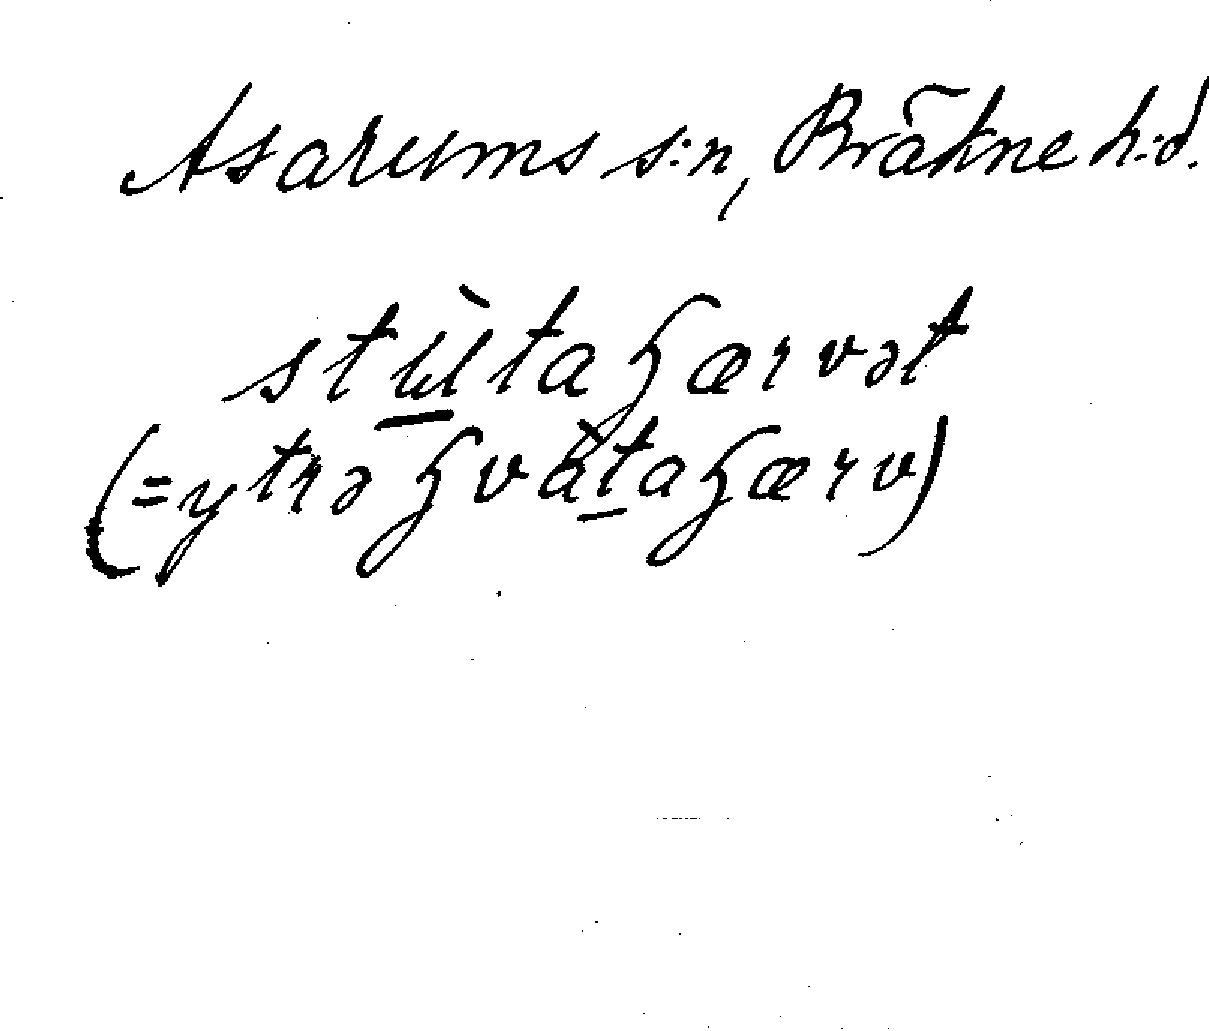 Asarums s:n, Bräkne h:d.
stùtaʒærvət
(=ytrə ʒvàtaʒærv)